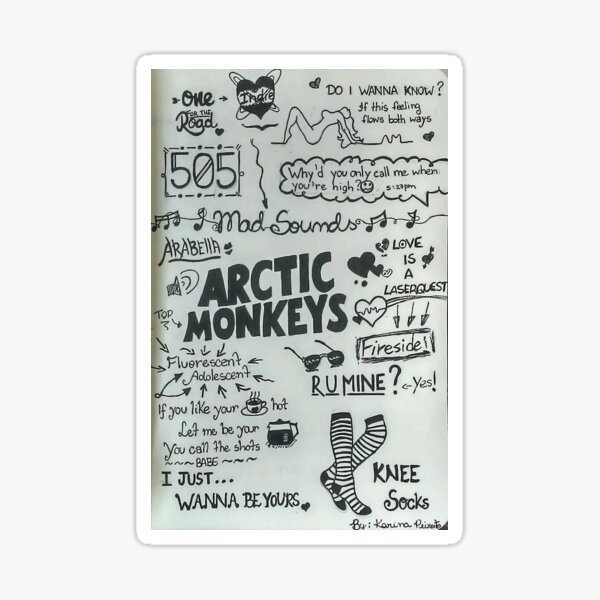 one
FOR THE
Road
Indie
DO I WANNA KNOW?
If this feeling
flows both ways
505
Why'd you only call me when
you're high?
5:23pm
Mad Sounds
ARABELLA
LOVE
IS
A
LASERQUEST
ARCTIC
MONKEYS
TOP
5
Fireside!
Fluorescent
Adolescent
R U MINE?
Yes!
If you like your hot
Let me be your
You call the shots
~~~BABE~~~
I JUST...
WANNA BE YOURS
KNEE
Socks
By: Karina